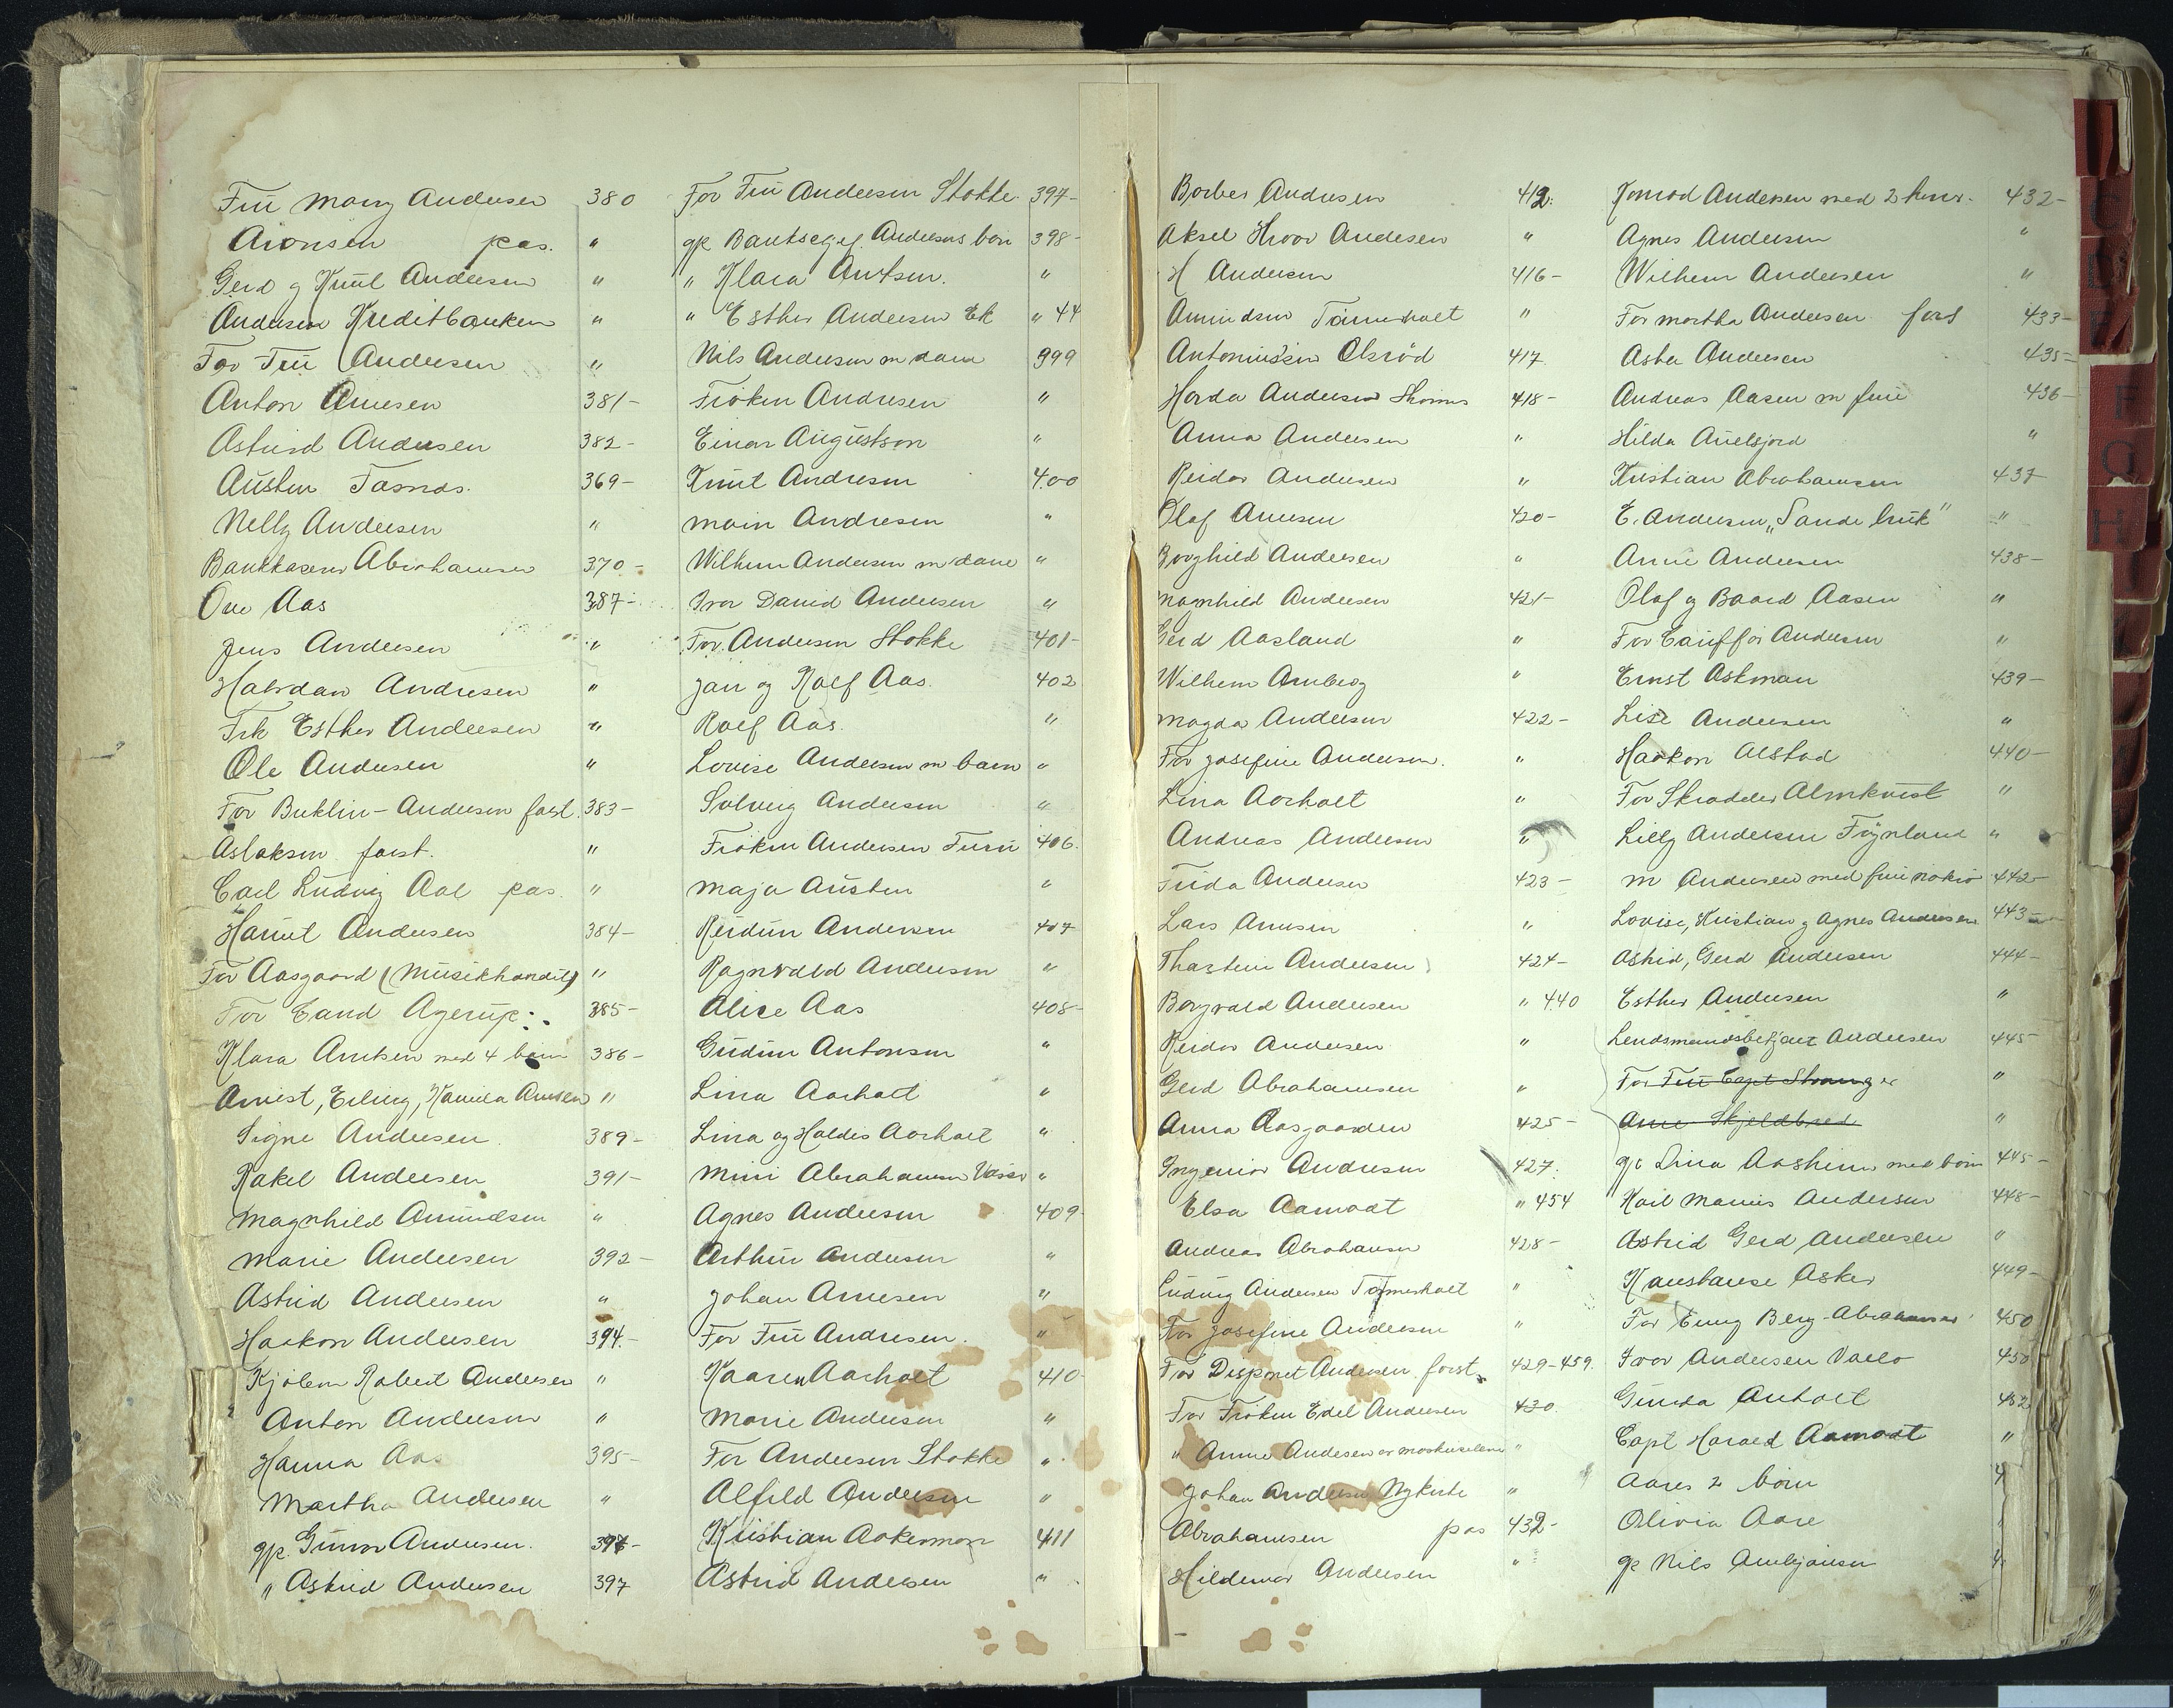 Fru Mary Andersen 380
Aronsen pas. "
Gerd g Knut Andersen "
Andersen Kreditbanken "
For Fru Andersen "
Anton Arnesen 381-
Astrid Andersen 382-
Austen Tasnos. 369-
Nelly Andersen "
Bankkaserer Abrahamsen 370-
Ove Aas 387-
Jens Andersen "
Halvdan Andresen "
Frk Esther Andersen "
Ole Andersen "
For Buklin-Andersen forst. 383-
Aslaksen forst. "
Carl Ludvig Aal pas. "
Harriet Andersen 384-
For Aasgaard (Musikhandel) "
For Cand Agerup: 385-
Klara Arntsen med 4 barn 386-
Arnist, Erling, Kamilla Arntsen "
Signe Andersen 389-
Rakel Andersen 391-
Magnhild Amundsen "
Marie Andersen 392-
Astrid Andersen "
Haakon Andersen 394.-
Kjölem Robert Andersen "
Anton Andersen "
Hanna Aas 395-
Martha Andersen "
gp. Gunvor Andersen. 397-
" Astrid Andersen 397
For Fru Andersen Stokke 397-
gp Bankseggf. Andersens barn 398-
" Klara Arntsen. "
" Esther Andersen Ek " 44
Nils Andersen m dame 399
Fröken Andresen "
Einar Augustson "
Knut Andresen 400
Main Andresen "
Wilhem Andersen m dame "
Ivar David Andersen "
For. Andersen Stokke 401-
Jan og Rolf Aas. 402
Rolf Aas. "
Lovise Andersen m barn "
Solveig Andersen "
Fröken Andersen Furu 406.
Maja Austen "
Reidun Andersen 407
Ragnvald Andersen "
Alice Aas 408-
Gudun Antonsen "
Lina Aarholt "
Lina og Haldis Aarholt "
Mimi Abrahamsen Vasser "
Agnes Andersen 409-
Arthur Andersen "
Johan Arnesen "
For Fru Andresen. "
Kaaren Aarholt 410-
Marie Andersen "
For Andersen Stokke "
Alfild Andersen "
Kristian Aakerman 411
Astrid Andersen "
Borber Andresen 412.
Aksel Hroar Andersen "
H Andersen 416-
Amundsen Tömmerholt "
Antoniussen Olsröd 417
Herda Andersen 418-
Anna Andersen "
Reidar Andersen "
Olaf Arnesen 420-
Borghild Andersen "
Magnhild Andersen 421-
Gerd Aasland "
Wilhem Arnberg "
Magda Andersen 422-
For Josefine Andersen. "
Lina Aarholt "
Andreas Andersen "
Frida Andersen 423-
Lars Arnesen "
Thorstein Andersen 424-
Borgvald Andersen " 440
Reidar Andersen "
Gerd Abrahamsen "
Anna Aasgaarden 425-
Ingeniör Andresen 427.
Elsa Aamodt " 454
Andreas Abrahamsen 428-
Ludvig Andersen Tömmerholt "
For Josefine Andersen "
For Disponet Andersen forst. 429-459.
For Fröken Edel Andersen 430.
" Anna Andersen "
Johan Andersen Nykirke "
Abrahamsen pas 432-
Hildemar Andersen "
Konrod Andersen med 2 432-
Agnes Andersen "
Wilhem Andersen "
For Martha Andersen forst 433-
Asta Andersen 435-
Andreas Aasen m frue 436-
Hilda Auelsjord "
Kristian Abrahamsen 437
E. Andersen "Sande bruk" "
Anne Andersen 438-
Olaf og Baard Aasen "
For Caufför Andersen "
Ernst Askman 439-
Lise Andersen "
Haakon Alstad 440-
For Skrædder Almkvist "
Lilly Andersen Fÿnland "
M Andersen med frue 442-
Lovise, Kristian g Agnes Andersen 443-
Astrid, Gerd Andersen 444-
Esther Andersen "
Lendsmandsbetjent Andersen 445-
For Fru Capt Stranger "
Anne Skjeldbred "
gp Lina Aasheim med barn 445-
Karl Marius Andersen 448-
Astrid Gerd Andersen "
Konstanse Asker 449-
For Enny Berg-Abrahamsen 450
Ivar Andersen Vallø 450
Gunda Anholt 452
Capt Harald Aamodt "
Aares 2 börn
Olivia Aare
gp Nils Arnbjörnsen